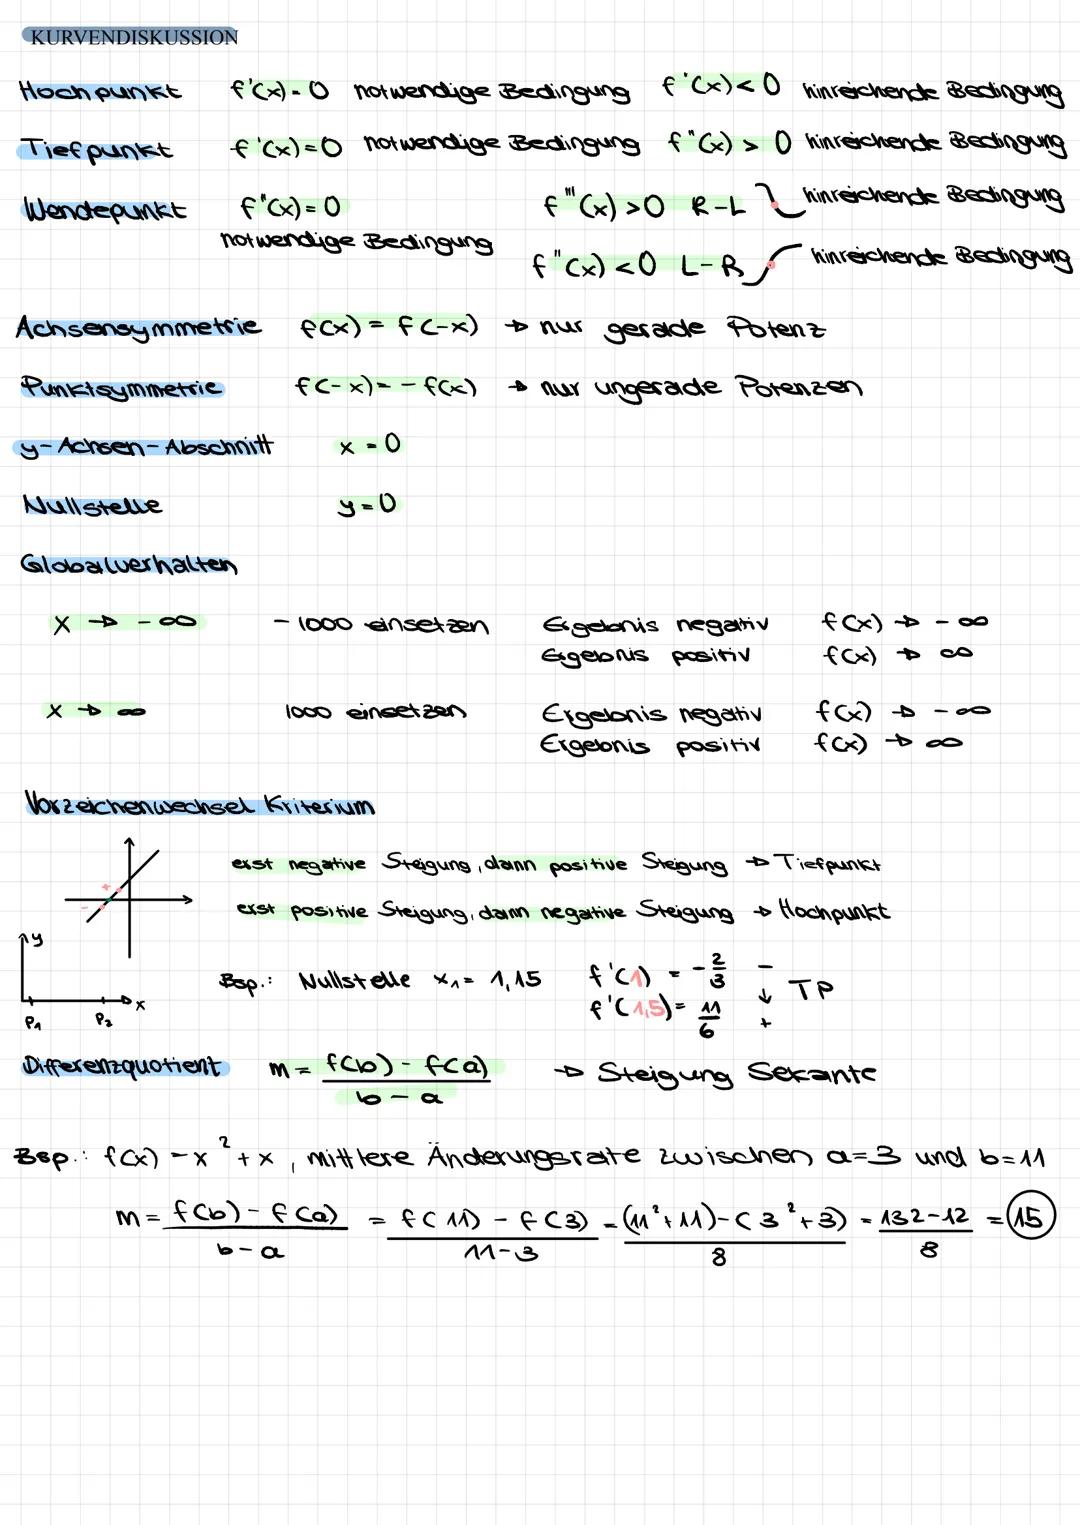 KURVENDISKUSSION
Hochpunkt f'(x) = 0 notwendige Bedingung f'(x) < 0 hinreichende Bedingung
Tiefpunkt f'(x) = 0 notwendige Bedingung f"(x) > 0 hinreichende Bedingung
Wendepunkt f"(x) = 0 f'''(x) > 0 R-L hinreichende Bedingung
notwendige Bedingung
f"(x) < 0 L-R hinreichende Bedingung
Achsensymmetrie f(x) = f(-x) → nur gerade Potenz
Punktsymmetrie f(-x) = - f(x) → nur ungerade Potenzen
y-Achsen-Abschnitt x = 0
Nullstelle y = 0
Globalverhalten
x → - ∞ - 1000 einsetzen Ergebnis negativ f(x) → - ∞
Ergebnis positiv f(x) → ∞
x → ∞ 1000 einsetzen Ergebnis negativ f(x) → - ∞
Ergebnis positiv f(x) → ∞
Vorzeichenwechsel Kriterium
erst negative Steigung, dann positive Steigung → Tiefpunkt
erst positive Steigung, dann negative Steigung → Hochpunkt
- +
y x P₁ P₂
Bsp.: Nullstelle x₁ = 1,15 f'(1) = -2/3 - ↓ + TP
f'(1,5) = 11/6
Differenzquotient m = (f(b) - f(a))/(b - a) → Steigung Sekante
Bsp.: f(x) = x² + x, mittlere Änderungsrate zwischen a=3 und b=11
m = (f(b) - f(a))/(b - a) = (f(11) - f(3))/(11-3) = ((11²+11)-(3²+3))/8 = (132-12)/8 = 15